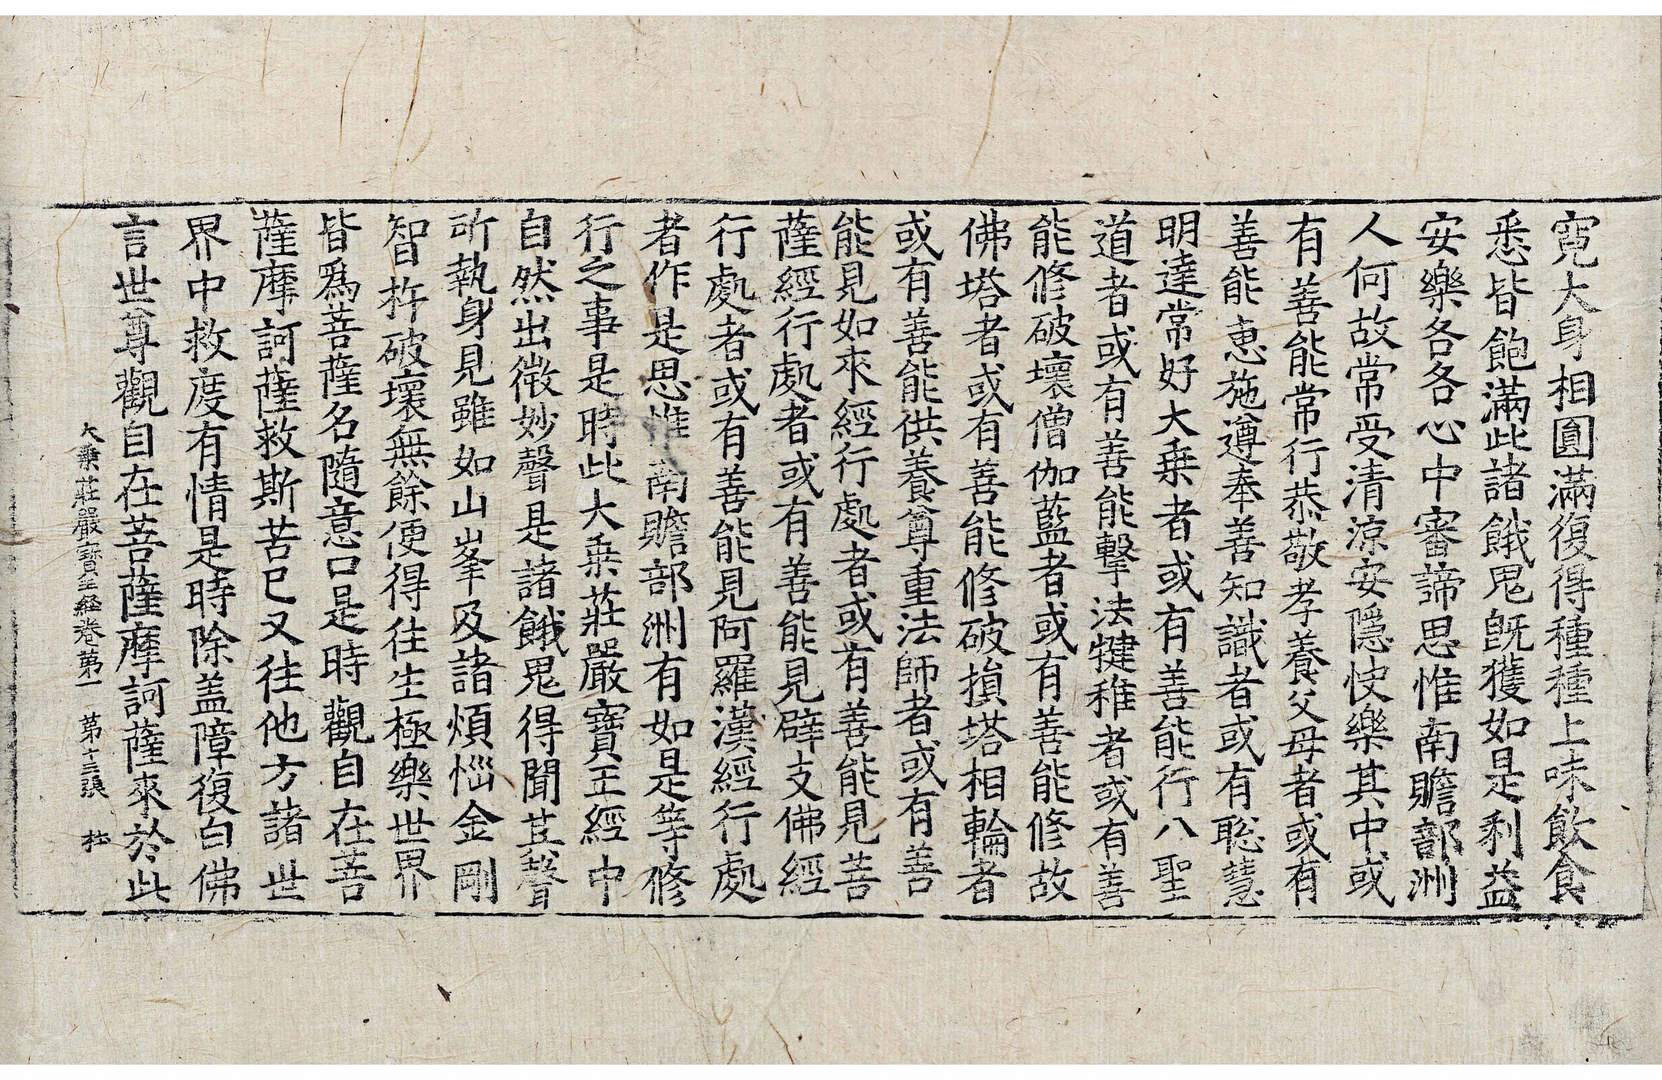 寬大身相圓滿復得種種上味飲食
悉皆飽滿此諸餓鬼旣獲如是利益
安樂各各心中審諦思惟南贍部洲
人何故常受清涼安隱快樂其中或
有善能常行恭敬孝養父母者或有
善能惠施遵奉善知識者或有聡慧
明達常好大乗者或有善能行八聖
道者或有善能擊法犍稚者或有善
能修破壞僧伽藍者或有善能修故
佛塔者或有善能修破損塔相輪者
或有善能供養尊重法師者或有善
能見如來經行處者或有善能見菩
薩經行處者或有善能見辟支佛經
行處者或有善能見阿羅漢經行處
者作是思惟南贍部洲有如是等修
行之事是時此大乗莊嚴寶王經中
自然出微妙聲是諸餓鬼得聞其聲
所執身見雖如山峯及諸煩惱金剛
智杵破壞無餘便得往生極樂世界
皆爲菩薩名隨意口是時觀自在菩
薩摩訶薩救斯苦已又往他方諸世
界中救度有情是時除盖障復白佛
言世尊觀自在菩薩摩訶薩來於此
大乗莊嚴寳王經卷第一 第十三張